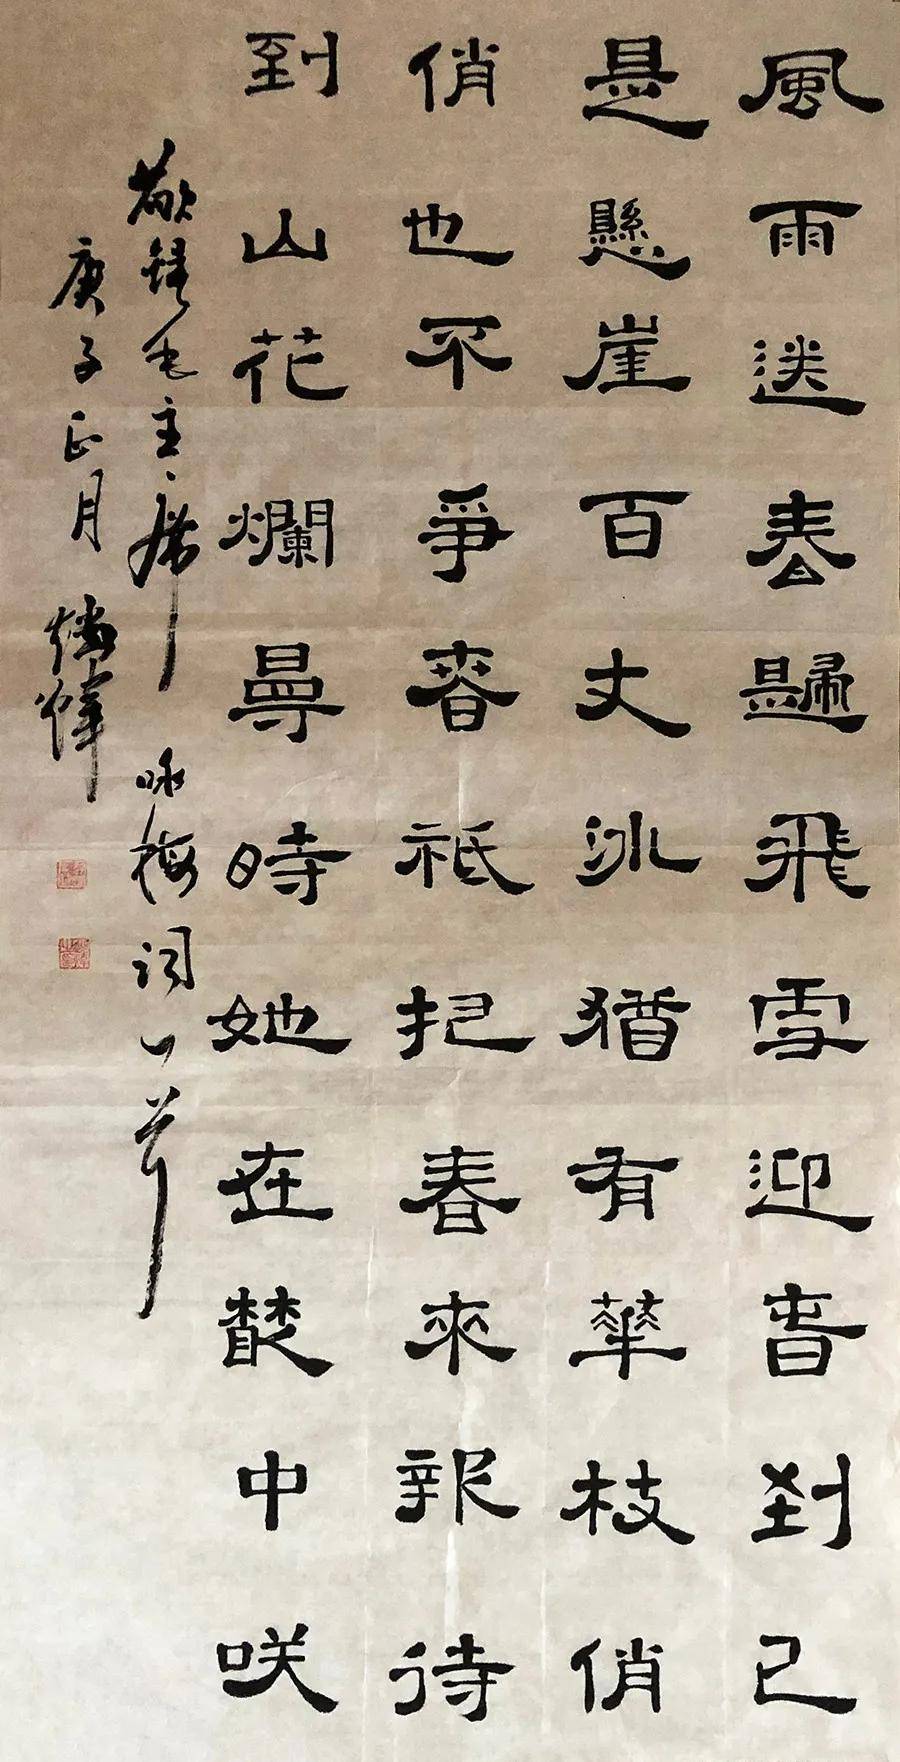 風雨送春歸飛雪迎春到已
是懸崖百丈冰猶有華枝俏
俏也不爭春祗把春來報待
到山花爛曼時她在叢中咲
敬錄毛主席 咏梅詞一首
庚子正月